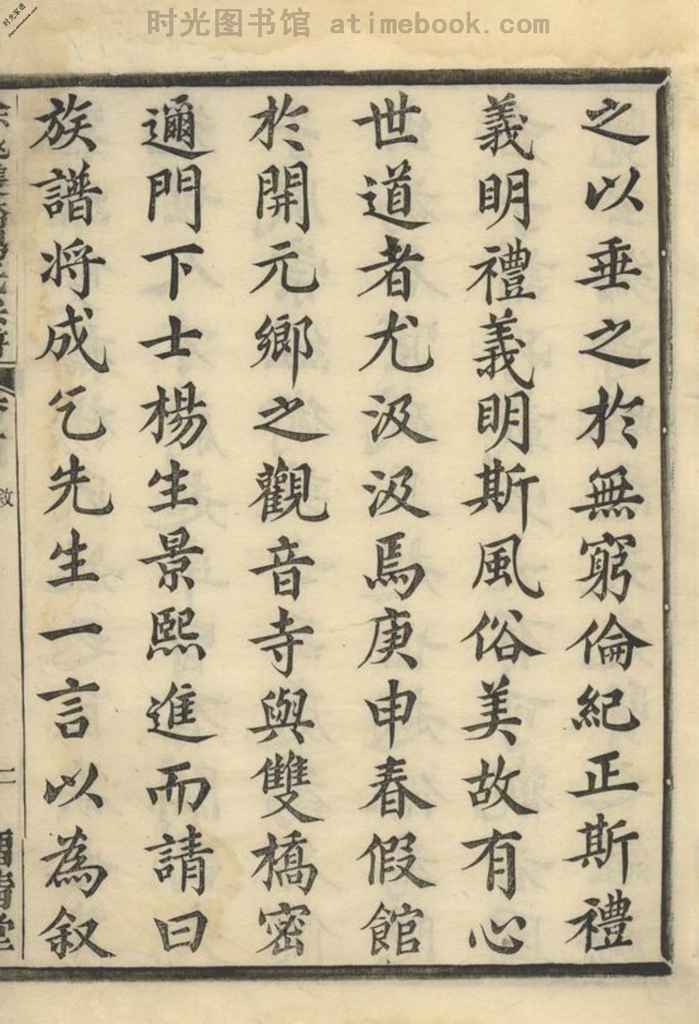 时光图书馆 atimebook.com
之以垂之於無窮倫紀正斯禮
義明禮義明斯風俗美故有心
世道者尤汲汲焉庚申春假館
於開元鄉之觀音寺與雙橋密
邇門下士楊生景熙進而請曰
族譜將成乞先生一言以為叙